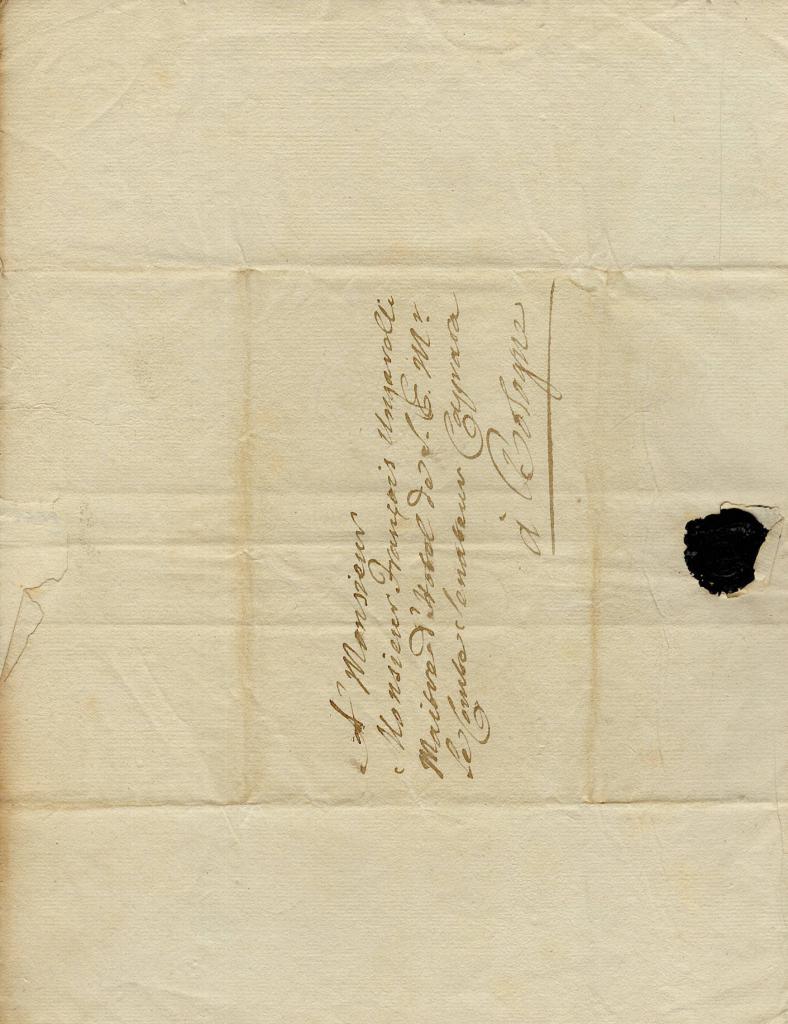 A Monsieur
Monsieur François Ungarelli
Maitre d'Hotel de S. E. Mr.
le Comte Senateur Caprara
à Bologne